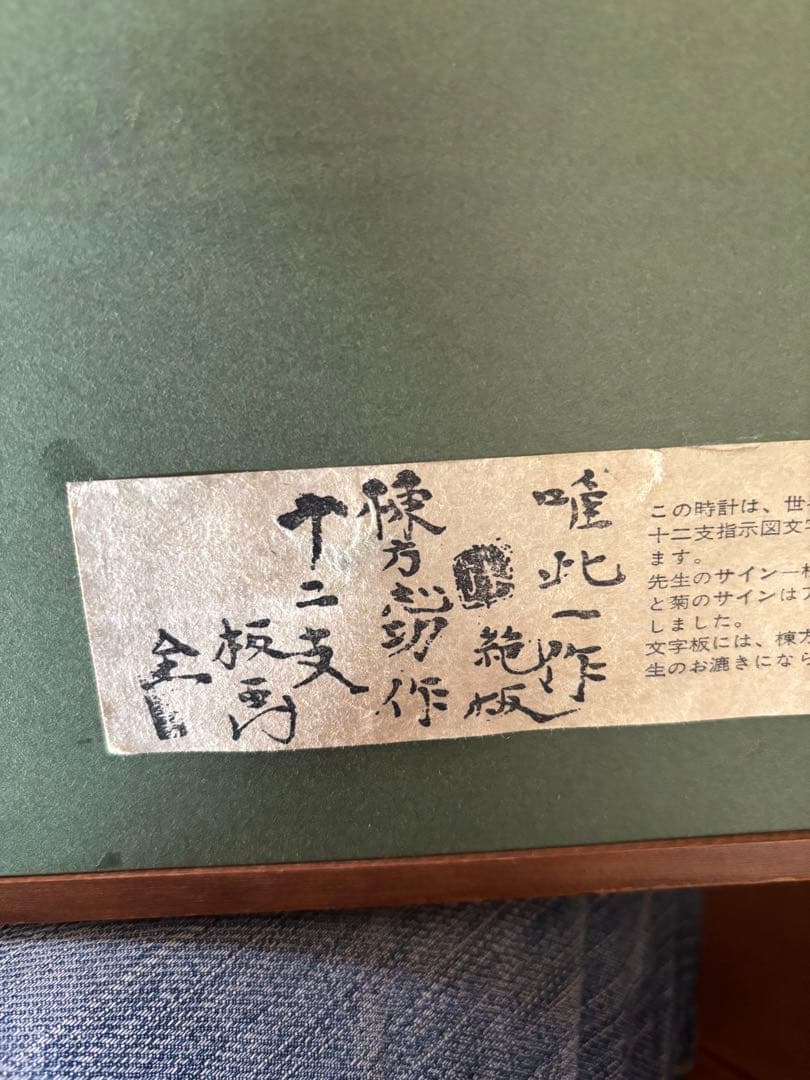 唯此一作
範板
棟方志功作
十二支
板画
全
この時計は、世
十二支指示図文
ます。
先生のサイン一
と菊のサインは
しました。
文字板には、棟方
生のお漉きになら